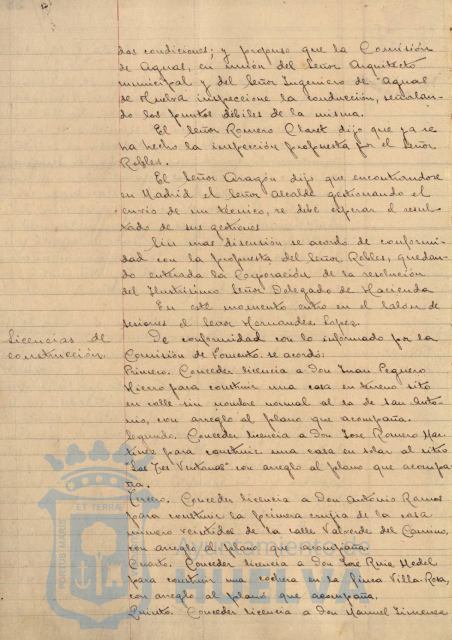 dos condiciones; y propuso que la Comisión
de Aguas, en unión del Señor Arquitecto
municipal y del Señor Ingeniero de "Aguas
de Huelva inspeccione la conducción, señalan-
do los puntos débiles de la misma.
El Señor Romero Claret dijo que ya se
ha hecho la inspección propuesta por el Señor
Robles.
El Señor Aragón dijo que encontrándose
en Madrid el Señor Alcalde gestionando el
envío de un técnico, se debe esperar el resul-
tado de sus gestiones
Sin mas discusión se acordó de conformi-
dad con la propuesta del Señor Robles, quedan-
do enterada la Corporación de la resolución
del Ilustrísimo Señor Delegado de Hacienda
En este momento entro en el Salón de
sesiones el Señor Hernandez Lopez.
Licencias de
construcción.
De conformidad con lo informado por la
Comisión de Fomento se acordó:
Primero. Conceder licencia a Don Juan Peguero
Hierro para construir una casa en terreno sito
en calle sin nombre normal al la de San Anto-
nio, con arreglo al plano que acompaña.
Segundo. Conceder licencia a Don Jose Romero Mar-
tinez para construir una casa en solar al sitio
"Las Tres Ventanas" con arreglo al plano que acompa-
ña.
Tercero. Conceder licencia a Don Antonio Ramos
para construir la primera crujia de la casa
número veintidos de la calle Valverde del Camino,
con arreglo al plano que acompaña.
Cuarto. Conceder licencia a Don Jose Ruiz Medel
para construir una cochera en la finca Villa-Rosa,
con arreglo al plano que acompaña.
Quinto. Conceder licencia a Don Manuel Jimenez
PORTUS MARIS
ET TERRAE
Ayuntamiento de
HUELVA